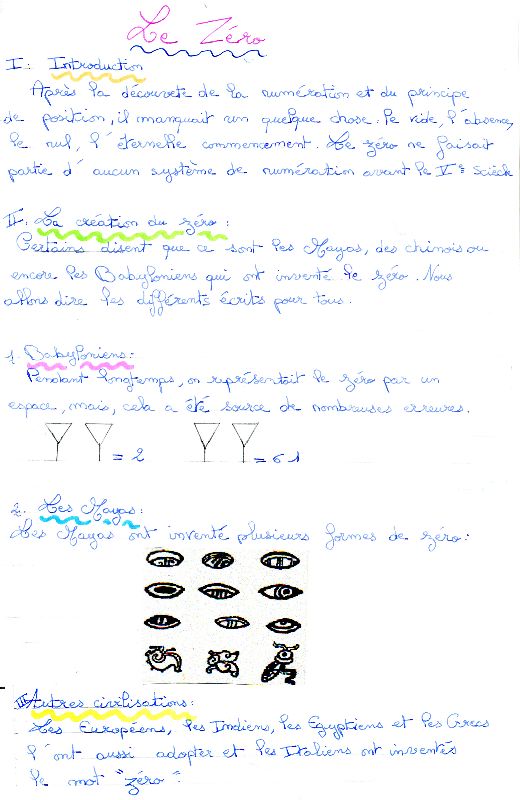 Le Zéro
I: Introduction
Après la découvete de la numération et du principe
de position, il manquait un quelque chose. le vide, l'absence,
le nul, l'éternelle commencement. Le zéro ne faisait
partie d'aucun système de numération avant le Vè Siècle
II: La création du zéro:
Certains disent que ce sont les Mayas, des chinois ou
encore les Babyloniens qui ont inventé le zéro. Nous
allons dire les différents écrits pour tous.
1. Babyloniens:
Pendant longtemps, on représentait le zéro par un
espace, mais, cela a été source de nombreuses erreures.
= 2 = 61
2. Les Mayas:
Les Mayas ont inventé plusieurs formes de zéro:
Autres civilisations:
Les Européens, les Indiens, les Egyptiens et les Grecs
l'ont aussi adopter et les Italiens ont inventés
le mot "zéro".